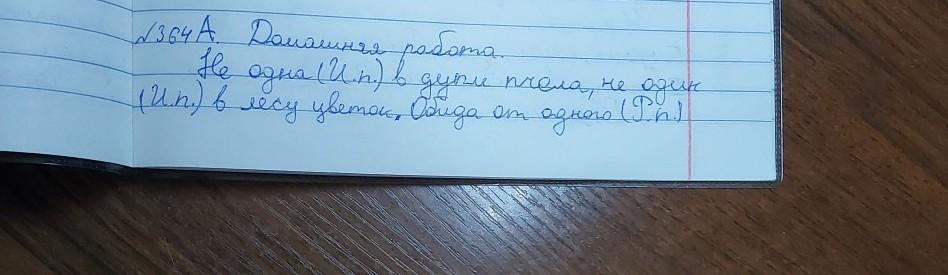 №364А. Домашняя работа.
Не одна (И.п.) в дупле пчела, не один
(И.п.) в лесу цветок. Обида от одного (Р.п.)